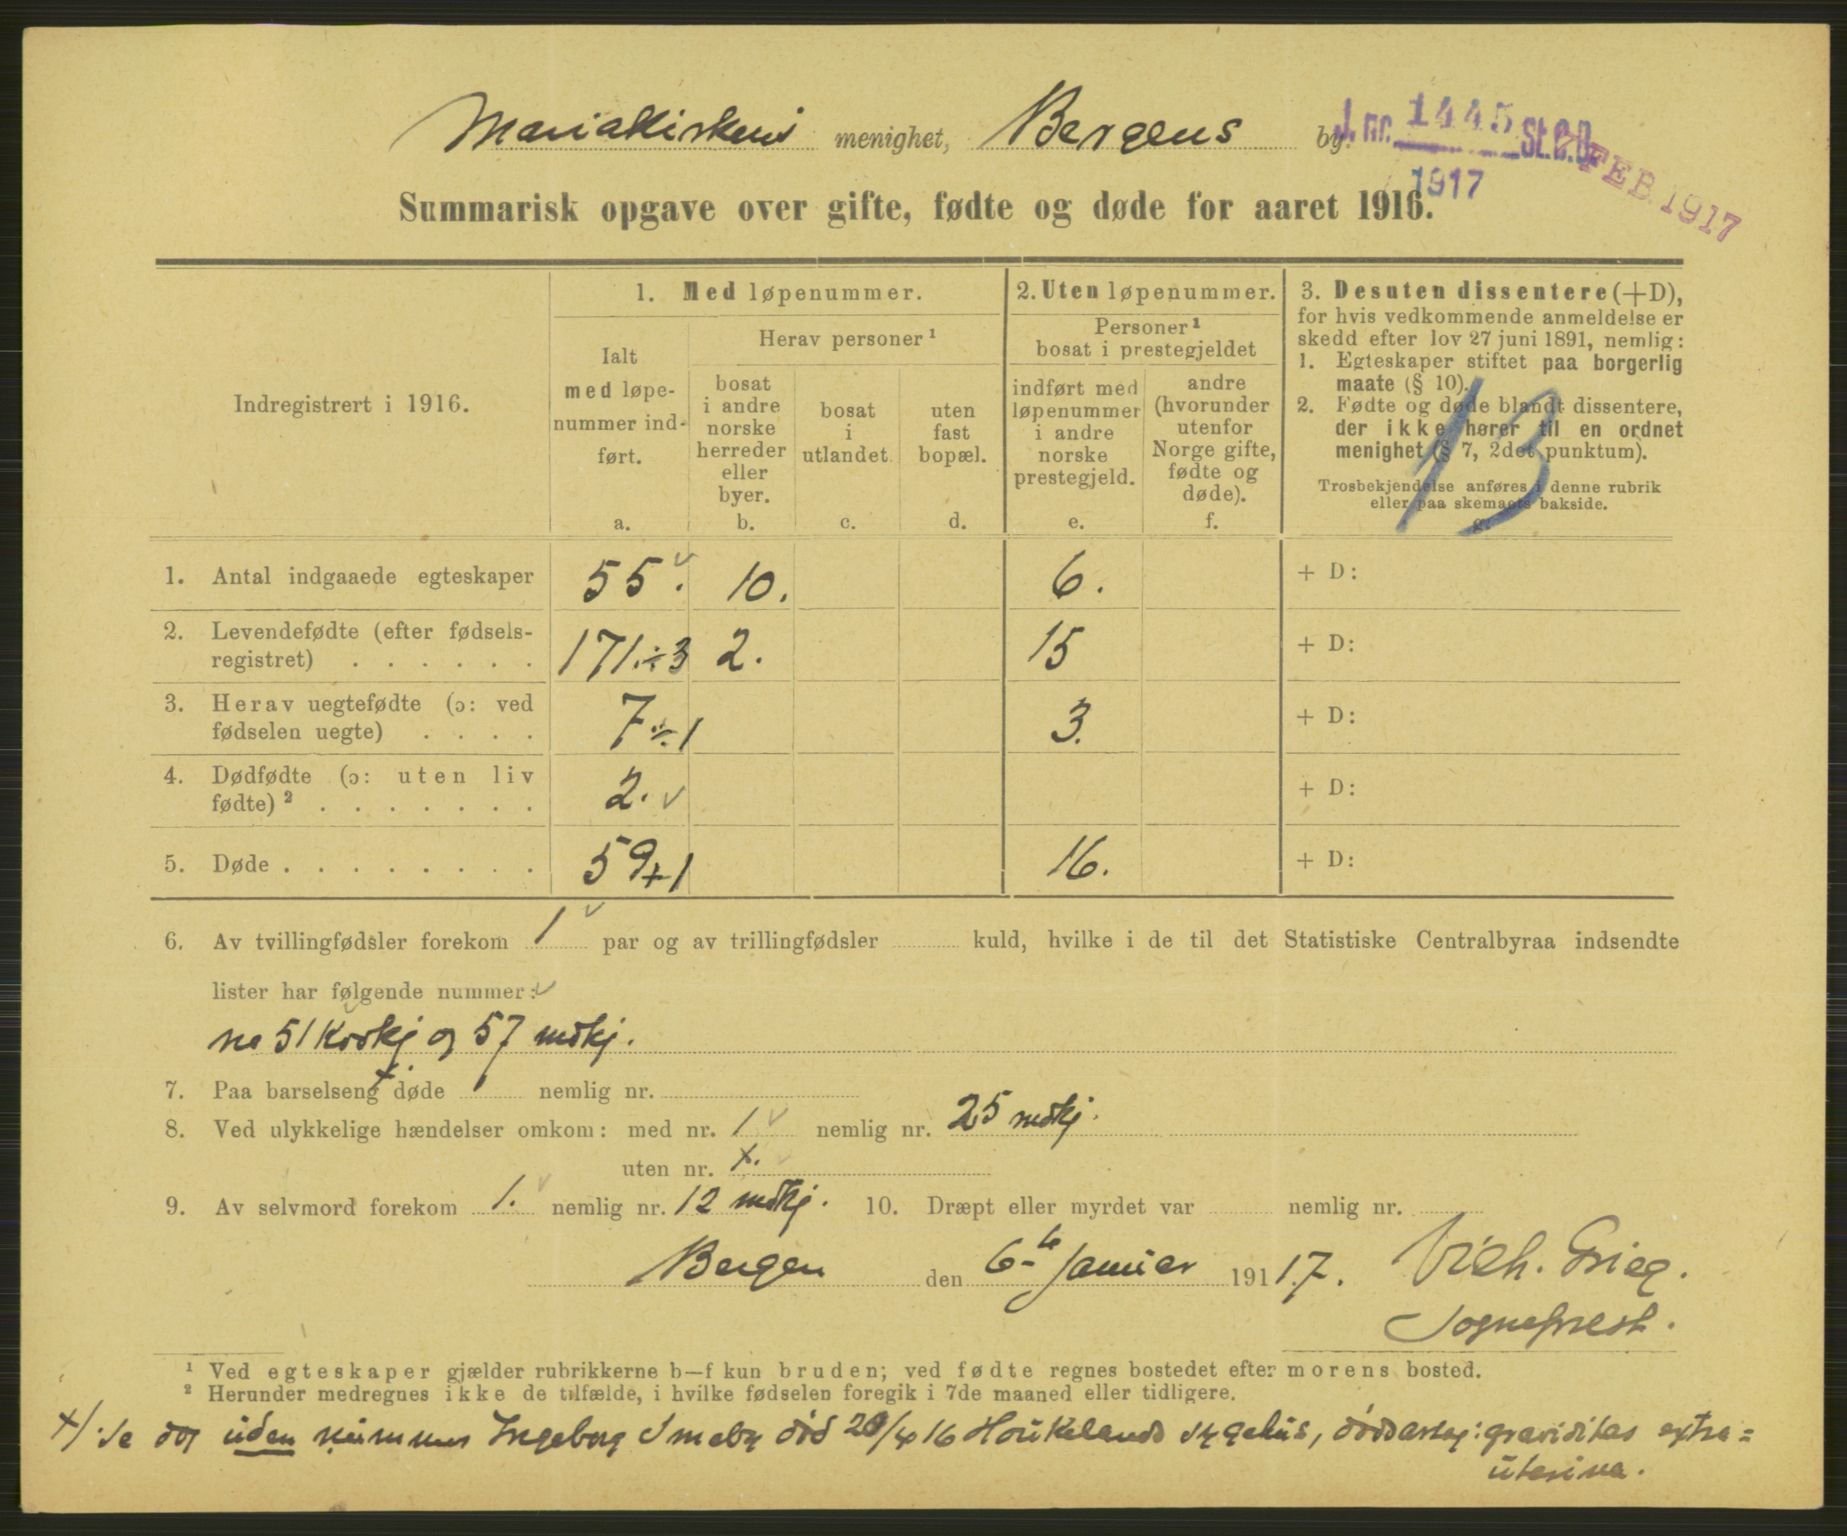 Mariakirkens menighet, Bergens by.
J. nr. 1445 St. C. B.
1917
FEB. 1917
Summarisk opgave over gifte, fødte og døde for aaret 1916.
Indregistrert i 1916.
1. Med løpenummer.
Ialt
med løpe-
nummer ind-
ført.
a.
Herav personer ¹
bosat
i andre
norske
herreder
eller
byer.
b.
bosat
i
utlandet
c.
uten
fast
bopæl.
d.
2. Uten løpenummer.
Personer ¹
bosat i prestegjeldet
indført med
løpenummer
i andre
norske
prestegjeld.
e.
andre
(hvorunder
utenfor
Norge gifte,
fødte og
døde).
f.
3. Desuten dissentere (+D),
for hvis vedkommende anmeldelse er
skedd efter lov 27 juni 1891, nemlig:
1. Egteskaper stiftet paa borgerlig
maate (§ 10).
2. Fødte og døde blandt dissentere,
der ikke hører til en ordnet
menighet (§ 7, 2det punktum).
Trosbekjendelse anføres i denne rubrik
eller paa skemaets bakside.
g.
13
1. Antal indgaaede egteskaper 55. 10. 6. + D:
2. Levendefødte (efter fødsels-
registret) . . . . . . 171.÷3 2. 15 + D:
3. Herav uegtefødte (ɔ: ved
fødselen uegte) . . . . 7÷1 3. + D:
4. Dødfødte (ɔ: uten liv
fødte) ² . . . . . . . 2. + D:
5. Døde . . . . . . . . 59+1 16. + D:
6. Av tvillingfødsler forekom 1 par og av trillingfødsler kuld, hvilke i de til det Statistiske Centralbyraa indsendte
lister har følgende nummer:
no 51 Kvkj og 57 mdkj.
7. Paa barselseng + døde nemlig nr.
8. Ved ulykkelige hændelser omkom: med nr. 1 nemlig nr. 25 mdkj.
uten nr. x.
9. Av selvmord forekom 1. nemlig nr. 12 mdkj. 10. Dræpt eller myrdet var nemlig nr.
Bergen den 6te Januar 1917. Vilh. Grieg.
Sogneprest.
¹ Ved egteskaper gjælder rubrikkerne b—f kun bruden; ved fødte regnes bostedet efter morens bosted.
² Herunder medregnes ikke de tilfælde, i hvilke fødselen foregik i 7de maaned eller tidligere.
+/. Se dog uden nummer Ingeborg Smeby død 20/4 16 Haukelands sygehus, dødsarsag: graviditas extra=
uterina.